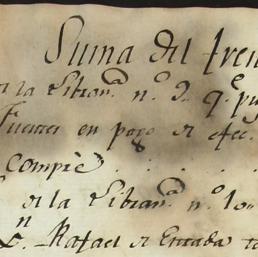 Suma del fren
de la Libran.ª n.º 2. q.e pu
Fuentes en pago de efec.
compré . . . .
de la Libran.ª n.º 10
n. Rafael de Estrada